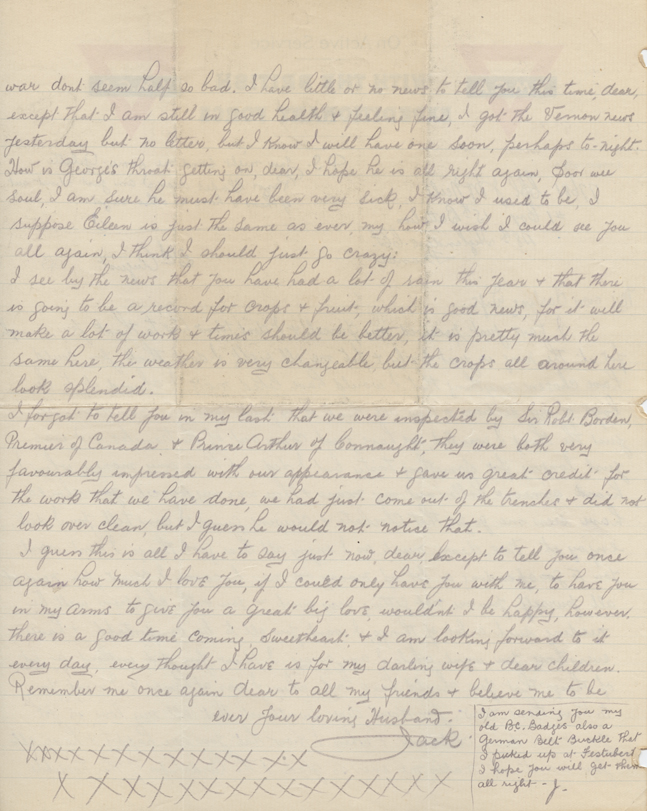 war dont seem half so bad. I have little or no news to tell you this time, dear,
except that I am still in good health & feeling fine, I got the Vernon news
yesterday but no letter, but I know I will have one soon, perhaps to-night.
How is George's throat getting on, dear, I hope he is all right again, Poor wee
soul, I am sure he must have been very sick, I know I used to be, I
suppose Eileen is just the same as ever, my how I wish I could see you
all again, I think I should just go crazy:
I see by the news that you have had a lot of rain this year & that there
is going to be a record for crops & fruit, which is good news, for it will
make a lot of work & times should be better, it is pretty much the
same here, the weather is very changeable, but the crops all around here
look splendid.
I forgot to tell you in my last that we were inspected by Sir Robt Borden,
Premier of Canada & Prince Arthur of Connaught, they were both very
favourably impressed with our appearance & gave us great credit for
the work that we have done, we had just come out of the trenches & did not
look over clean, but I guess he would not notice that.
I guess this is all I have to say just now, dear, except to tell you once
again how much I love you, if I could only have you with me, to have you
in my arms to give you a great big love, wouldn't I be happy, however.
there is a good time coming, sweetheart, & I am looking forward to it
every day, every thought I have is for my darling wife & dear children.
Remember me once again dear to all my friends & believe me to be
ever your loving Husband.
Jack
XXXXXXXXXXXXXXX
X XXXXXXXXXXXXXX
I am sending you my
old B.C. Badges also a
German Belt Buckle that
I picked up at Festubert
I hope you will get them
all right - J.